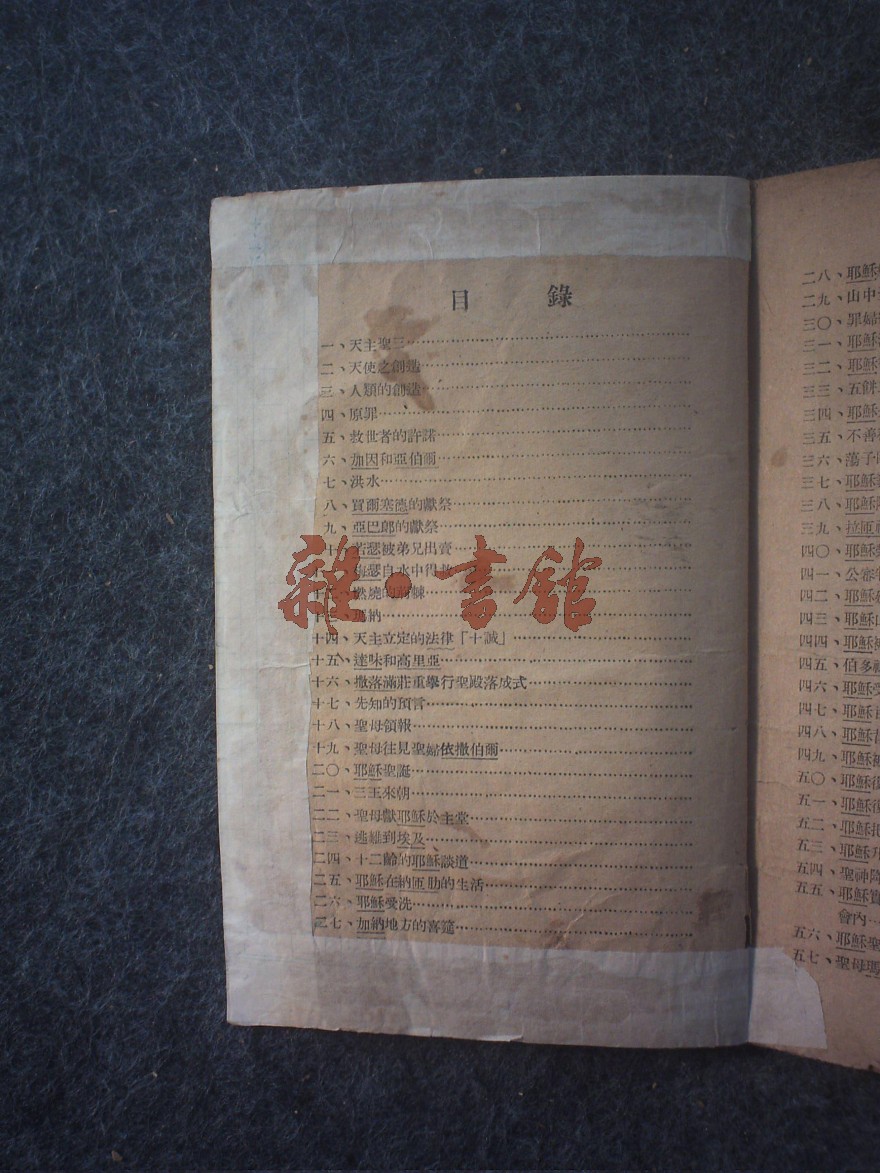 目錄
一、天主聖三
二、天使之創造
三、人類的創造
四、原罪
五、救世者的許諾
六、加因和亞伯爾
七、洪水
八、買爾塞德的獻祭
九、亞巴郎的獻祭
十、若瑟被弟兄出賣
梅瑟自水中得救
燃燒的荊棘
瑪納
十四、天主立定的法律「十誡」
十五、達味和高里亞
十六、撒落滿莊重舉行聖殿落成式
十七、先知的預言
十八、聖母領報
十九、聖母往見聖婦依撒伯爾
二〇、耶穌聖誕
二一、三王來朝
二二、聖母獻耶穌於主堂
二三、逃難到埃及
二四、十二齡的耶穌談道
二五、耶穌在納匝肋的生活
二六、耶穌受洗
二七、加納地方的喜筵
雜·書館
二八、耶穌
二九、山中
三〇、罪婦
三一、耶穌
三二、耶穌
三三、五餅
三四、耶穌
三五、不善
三六、蕩子
三七、耶穌
三八、耶穌
三九、拉匝
四〇、耶穌
四一、公審
四二、耶穌
四三、耶穌
四四、耶穌
四五、伯多祿
四六、耶穌受
四七、耶穌
四八、耶穌
四九、耶穌被
五〇、耶穌復
五一、耶穌復
五二、耶穌
五三、耶穌升
五四、聖神降
五五、耶穌
會內
五六、耶穌聖
五七、聖母瑪